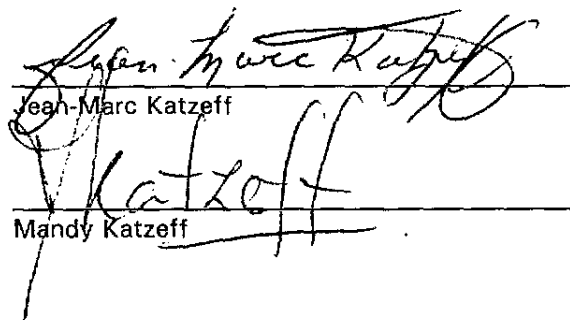 Jean-Marc Katzeff
Jean-Marc Katzeff
Katzeff
Mandy Katzeff